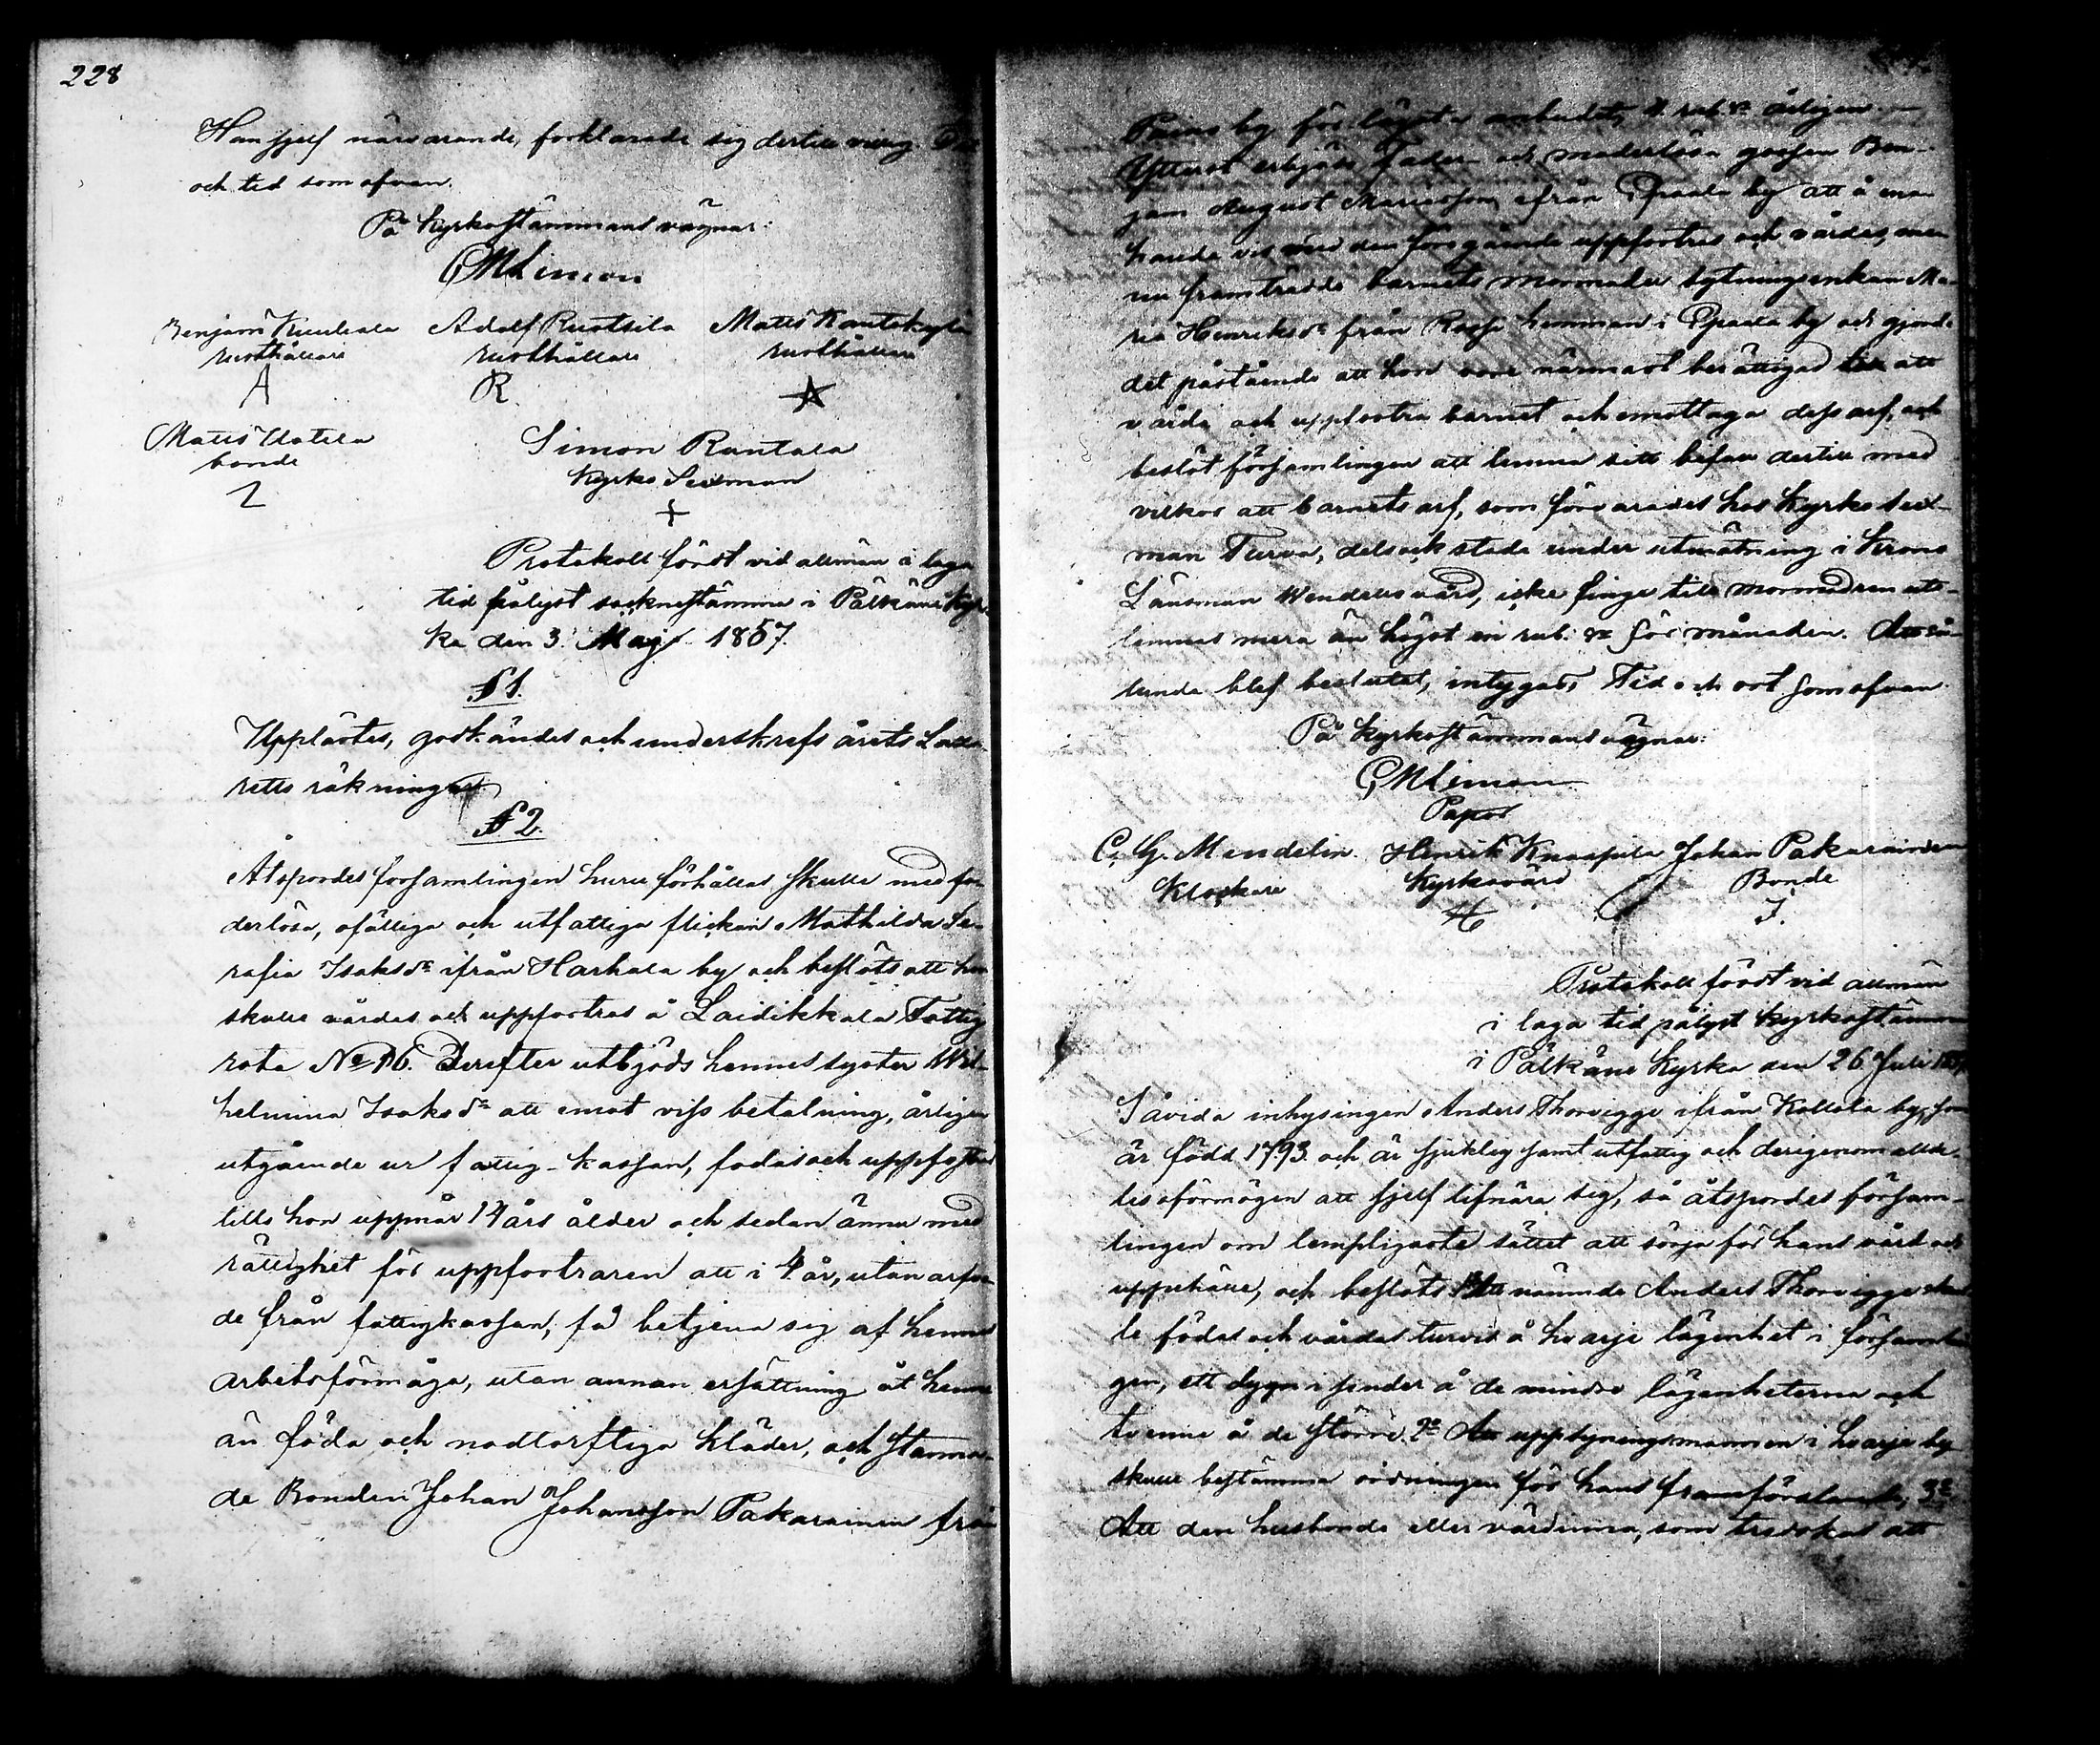 228
Han sjelf närvarande, förklarade sig dertill villig.
och tid som ofvan.
På Kyrkostämmans vägnar:
CMLimon
Benjam Kuuliala Adolf Ruotsila Matts Kantokylä
rusthållare rusthållare rusthållare
A R
Matts Uotila Simon Rantala
bonde Kyrko Sexman
+
Protokoll fördt vid allmän i laga
tid pålyst sockenstämma i Pälkäne Kyr-
ka den 3 Maji 1857.
§ 1.
Upplästes, godkändes och underskrefs årets Laza-
retts räkningar
§ 2.
Åtspordes församlingen huru förhållas skulle med fa-
derlösa, ofärdiga och utfattiga flickan Mathilda Se-
rafia Isaksdr ifrån Harhala by och beslöts att hon
skulle vårdas och uppfostras å Laidikkala Fattig
rota No 16. Derefter utbjöds hennes syster Wil-
helmina Isaksdr att emot viss betalning, årligen
utgående ur fattig-kassan, födas och uppfostras
tills hon uppnår 14 års ålder och sedan ännu med
rättighet för uppfostraren att i 4 år, utan arfvo-
de från fattigkassan, få betjena sig af hennes
arbetsförmåga, utan annan ersättning åt henne
än föda och nödtorftiga kläder, och stanna-
de Bonden Johan Johansson Pakarainen från
Painos by för lägsta anbudet, 4 rub. Sr årligen.
Ytterst erbjöds Fader- och moderlösa gossen Ben-
jam August Mariasson ifrån Epaala by att å ena-
handa vis med den föregående uppfostras och vårdas, men
nu framträdde barnets mormoder sytningsenkan Ma-
ria Henriksdr från Rossi hemman i Epaala by och gjorde
det påstående att hon vore närmast berättigad till att
vårda och uppfostra barnet och emottaga dess arf, och
beslöt församlingen att lemna sitt bifall dertill med
vilkor att barnets arf, som förvarades hos Kyrko Sex-
man Turva, dels ock stode under utmätning i Krono
Länsman Wendells vård, icke finge till mormodren ut-
lemnas mera än högst en rub. Sr för månaden. Att så-
lunda blef beslutat, intygas, Tid och ort som ofvan.
På Kyrkostämmans vägnar:
CMLimon
Pastor
C. G. Mendelin. Henrik Knaapila Johan Pakarainen
Klockare Kyrkovärd Bonde
H J.
Protokoll fördt vid allmän
i laga tid pålyst Kyrkostämma
i Pälkäne Kyrka den 26 Juli 1857
Såvida inhysingen Anders Thorvigge ifrån Kollola by, som
är född 1793 och är sjuklig samt utfattig och derigenom allde-
les oförmögen att sjelf lifnära sig, så åtspordes försam-
lingen om lempligaste sättet att sörja för hans vård och
uppehälle, och beslöts 1o Att nämnde Anders Thorvigge skul-
le födas och vårdas turvis å hvarje lägenhet i församlin-
gen, ett dygn i sender å de mindre lägenheterna och
tvenne å de större. 2o Att uppsyningsmannen i hvarje by
skulle bestämma ordningen för hans framförslande, 3o
Att den husbonde eller värdinna, som tredskas att